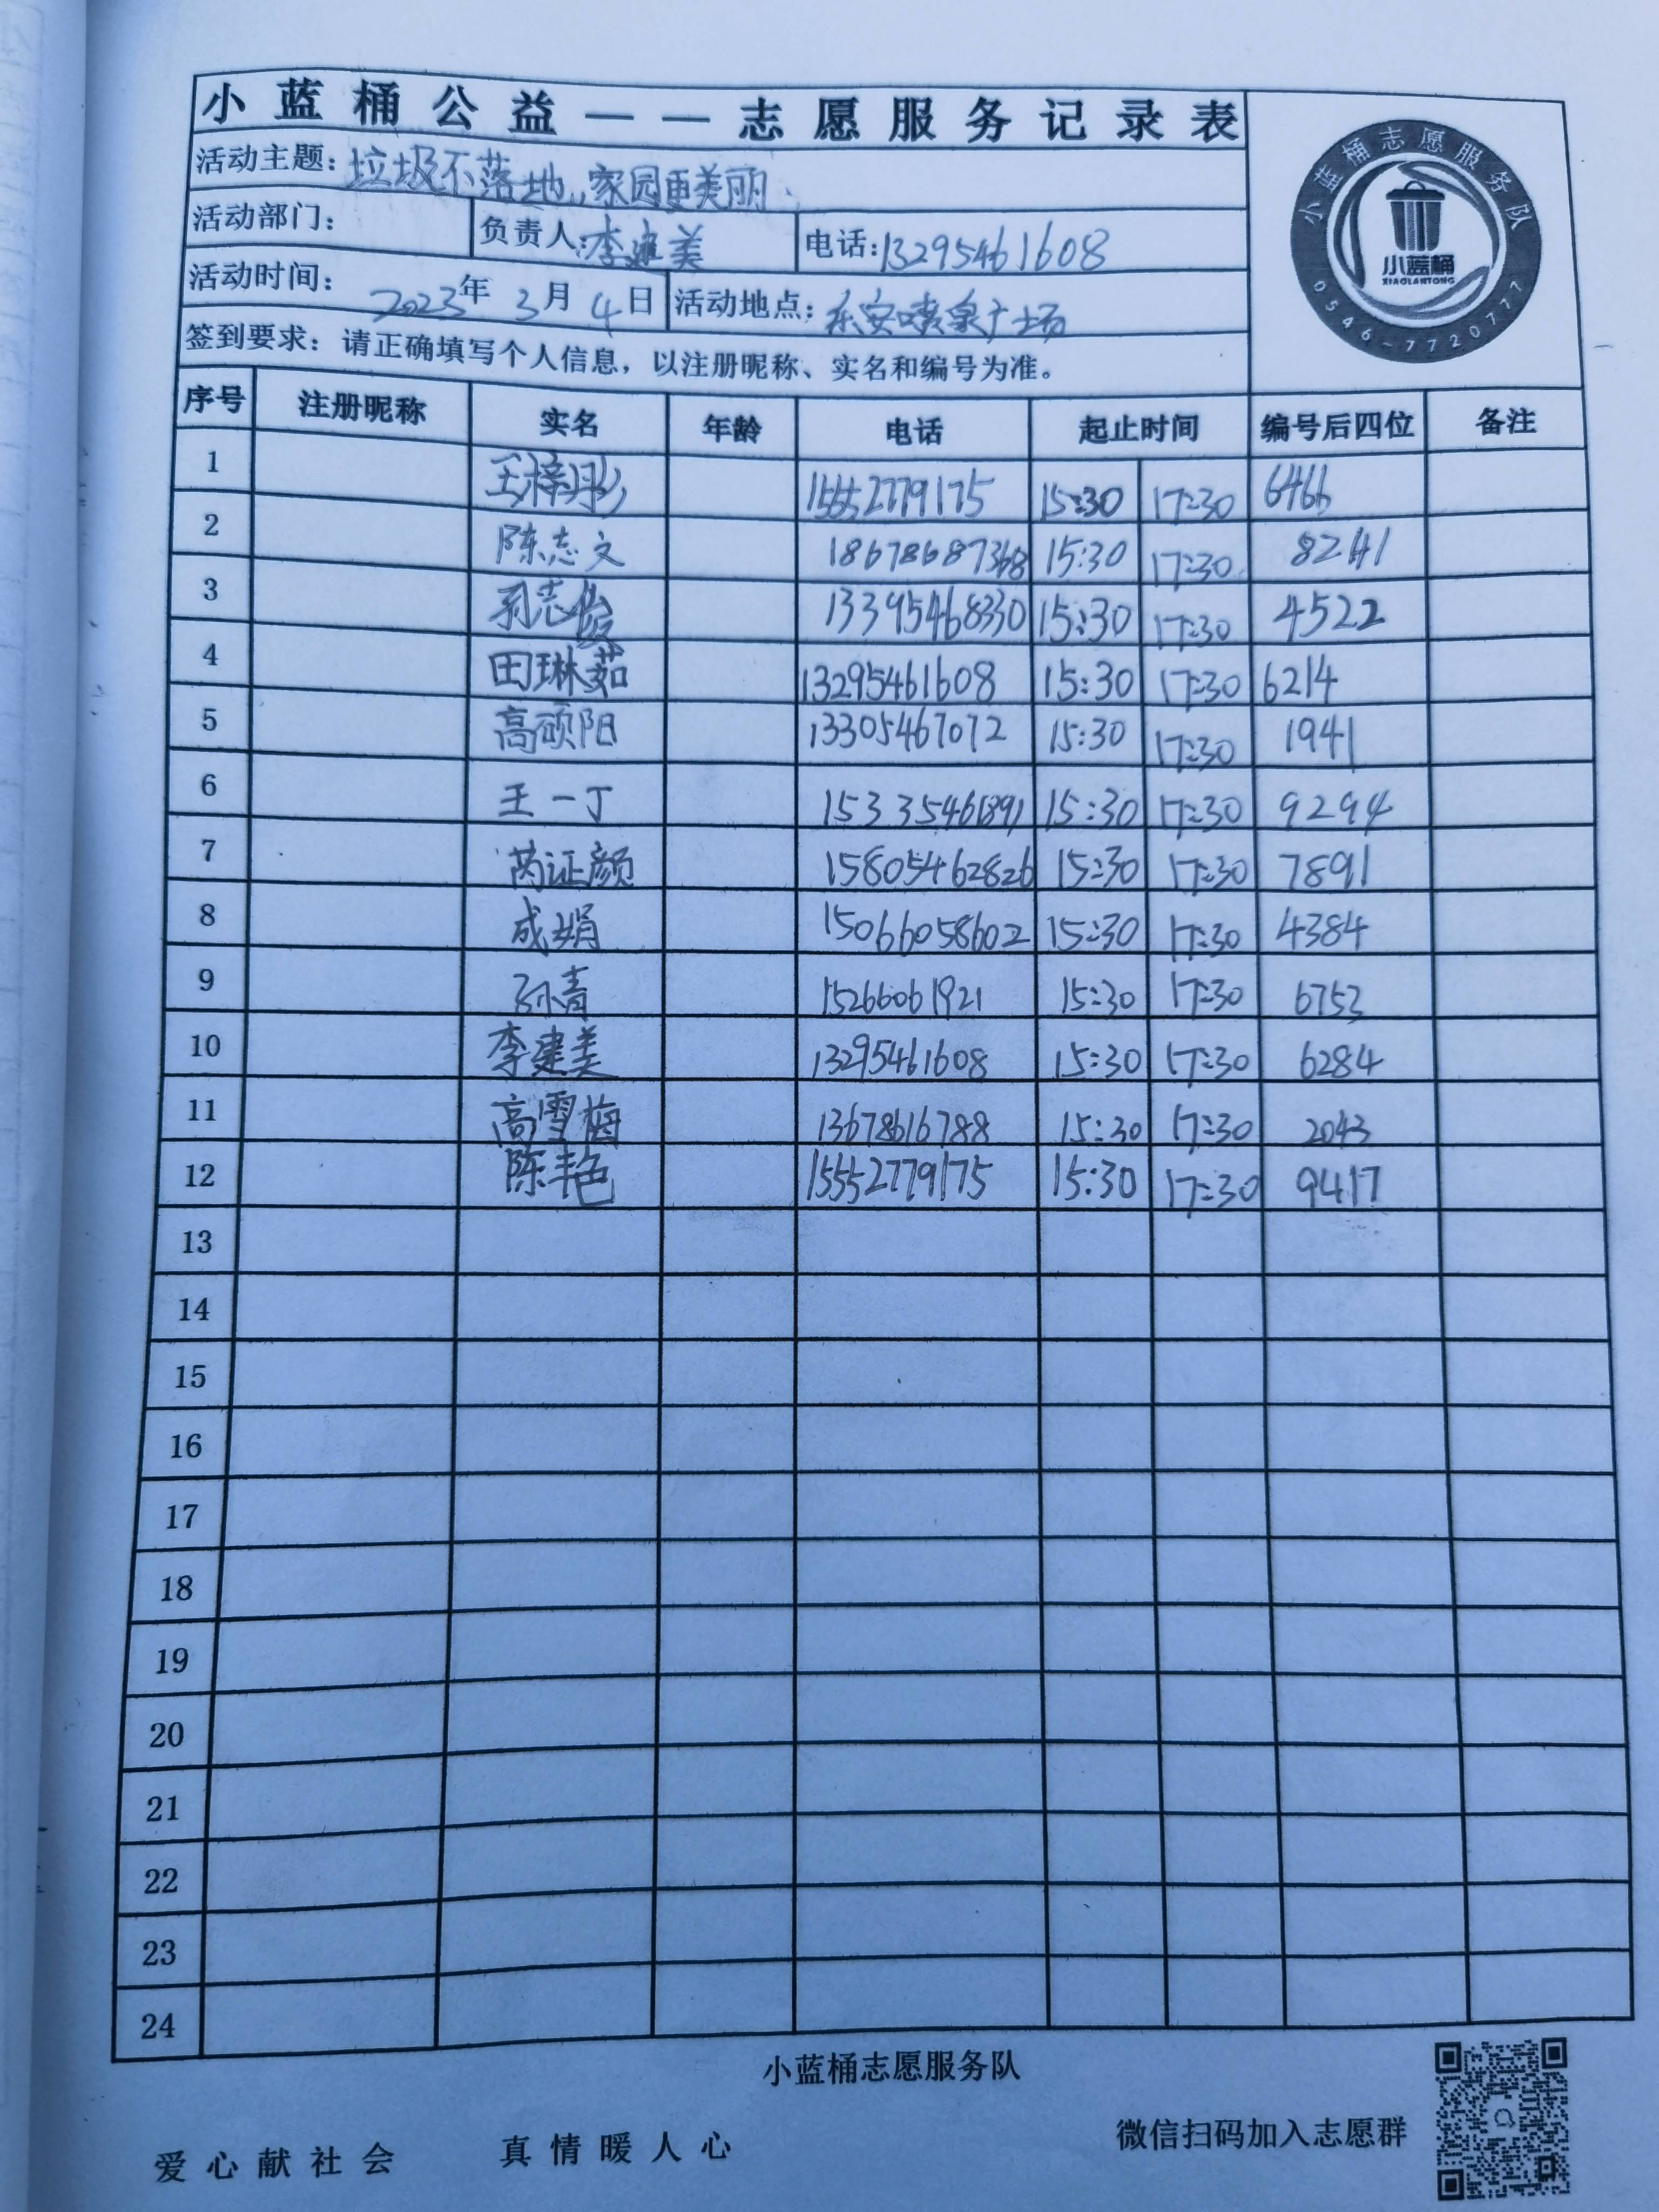 小蓝桶公益——志愿服务记录表
活动主题：垃圾不落地，家园更美丽
活动部门： 负责人：李建美 电话：13295461608
活动时间：2023年3月4日 活动地点：东安喷泉广场
签到要求：请正确填写个人信息，以注册昵称、实名和编号为准。
小蓝桶志愿服务队
小蓝桶
XIAOLANTONG
0546-7720777
序号 注册昵称 实名 年龄 电话 起止时间 编号后四位 备注
1 王梓彤 15552779175 15:30 17:30 6466
2 陈志文 18678687368 15:30 17:30 8241
3 孙志俊 13395468330 15:30 17:30 4522
4 田琳茹 13295461608 15:30 17:30 6214
5 高硕阳 13305467072 15:30 17:30 1941
6 王一丁 15335461891 15:30 17:30 9294
7 芮证颜 15805462826 15:30 17:30 7891
8 成娟 15066058602 15:30 17:30 4384
9 孙青 15266061921 15:30 17:30 6753
10 李建美 13295461608 15:30 17:30 6284
11 高雪梅 13678616788 15:30 17:30 2043
12 陈艳 15552779175 15:30 17:30 9417
13
14
15
16
17
18
19
20
21
22
23
24
小蓝桶志愿服务队
爱心献社会 真情暖人心 微信扫码加入志愿群